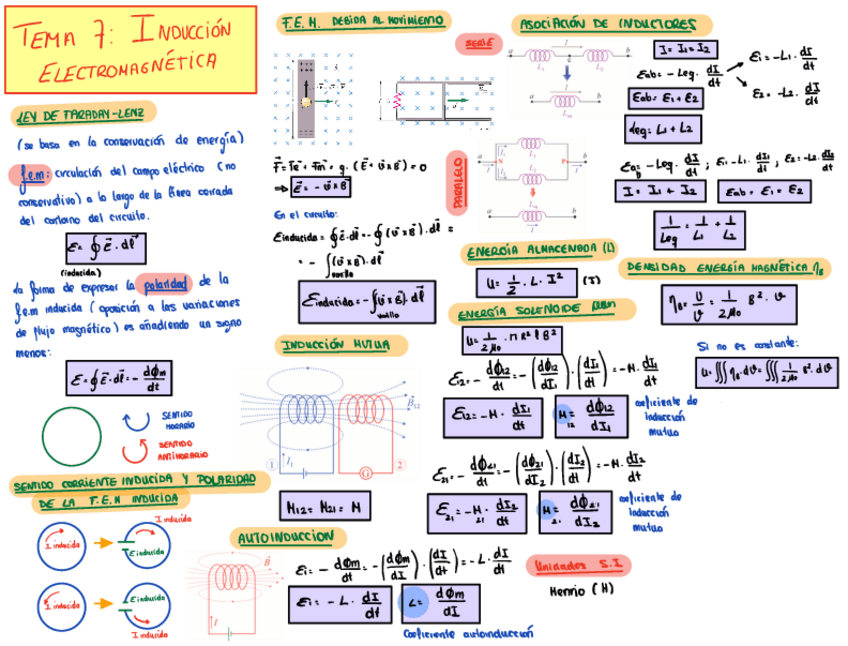 TEMA 7: INDUCCIÓN
ELECTROMAGNÉTICA
LEY DE FARADAY-LENZ
(se basa en la conservación de energía)
f.e.m: circulación del campo eléctrico (no
conservativo) a lo largo de la línea cerrada
del contorno del circuito.
ε = ∮ E⃗ · dl⃗
(inducida)
La forma de expresar la polaridad de la
f.e.m inducida (oposición a las variaciones
de flujo magnético) es añadiendo un signo
menos:
ε = ∮ E⃗ · dl⃗ = - dϕm/dt
SENTIDO
HORARIO
SENTIDO
ANTIHORARIO
SENTIDO CORRIENTE INDUCIDA Y POLARIDAD
DE LA F.E.M INDUCIDA
I inducida
I inducida
E inducida
I inducida
E inducida
I inducida
F.E.M. DEBIDA AL MOVIMIENTO
⇒ E⃗ = - v⃗ x B⃗
En el circuito:
INDUCCIÓN MUTUA
B⃗12
I1
1
G
2
M12 = M21 = M
AUTOINDUCCION
B⃗
I
εi = - dϕm/dt = - (dϕm/dI) · (dI/dt) = - L · dI/dt
εi = - L · dI/dt
L = dϕm/dI
Coeficiente autoinducción
ASOCIACIÓN DE INDUCTORES
SERIE
a
I
b
L1
c
L2
a
I
b
I = I1 = I2
Eab = - Leq · dI/dt
E1 = - L1 · dI/dt
E2 = - L2 · dI/dt
Eab = E1 + E2
Leq = L1 + L2
PARALELO
a
b
I = I1 + I2
Eab = E1 = E2
1/Leq = 1/L1 + 1/L2
ENERGÍA ALMACENADA (L)
U = 1/2 · L · I² (J)
DENSIDAD ENERGÍA MAGNÉTICA ηB
Si no es constante:
ENERGÍA SOLENOIDE
ε12 = - dϕ12/dt = - (dϕ12/dI1) · (dI1/dt) = - M · dI1/dt
ε12 = - M · dI1/dt
M12 = dϕ12/dI1
coeficiente de
inducción
mutua
ε21 = - dϕ21/dt = - (dϕ21/dI2) · (dI2/dt) = - M · dI2/dt
ε21 = - M21 · dI2/dt
M21 = dϕ21/dI2
coeficiente de
inducción
mutua
Unidades S.I
Henrio (H)